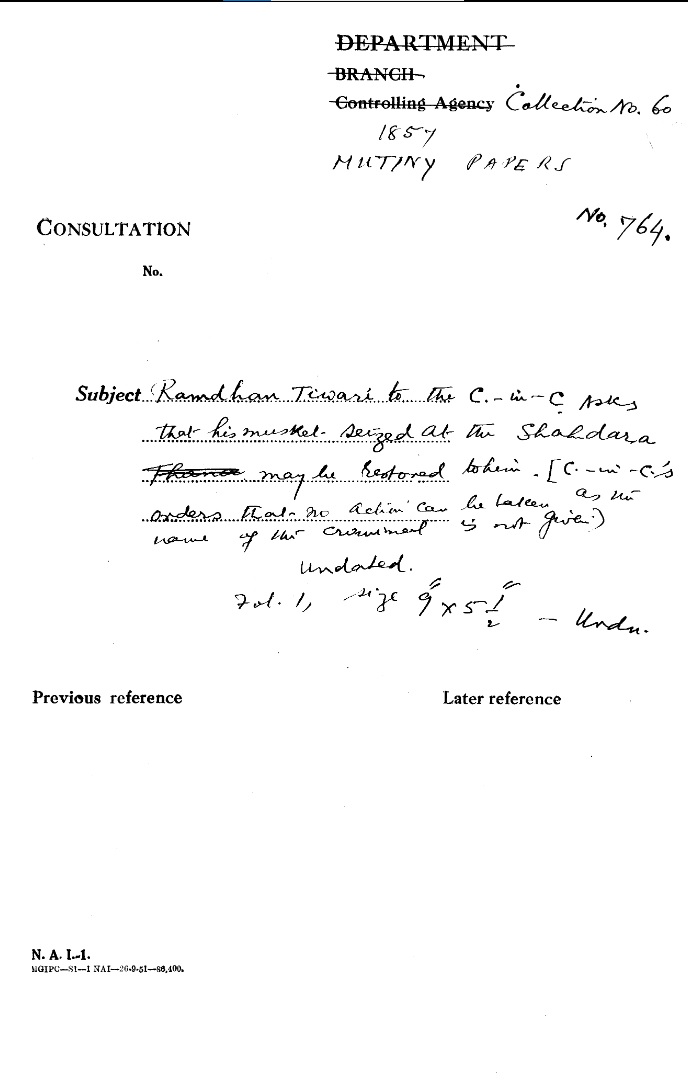 DEPARTMENT
BRANCH
Controlling Agency Collection No. 60
1857
MUTINY PAPERS
No. 764.
CONSULTATION
No.
Subject Ramdhan Tiwari to the C.-in-C asks
that his musket seized at the Shahdara
Thana may be restored to him. [C.-in-C.'s
orders that no action can be taken as the
name of the is not given)
Undated.
Fol. 1, size 9" x 5 1/2" - Urdu.
Previous reference
Later reference
N. A. I.-1.
MGIPC—S1—1 NAI—26-9-51—86,400.